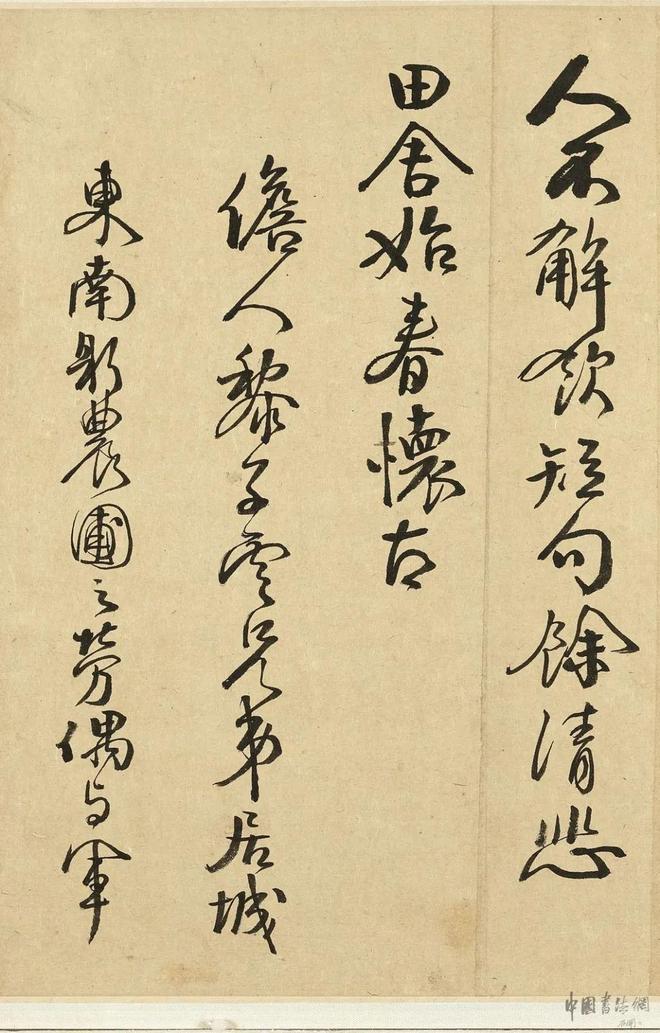 人不解飲短句餘清悲
田舍始春懷古
儋人黎子雲兄弟居城
東南躬農圃之勞偶与軍
中国书法網